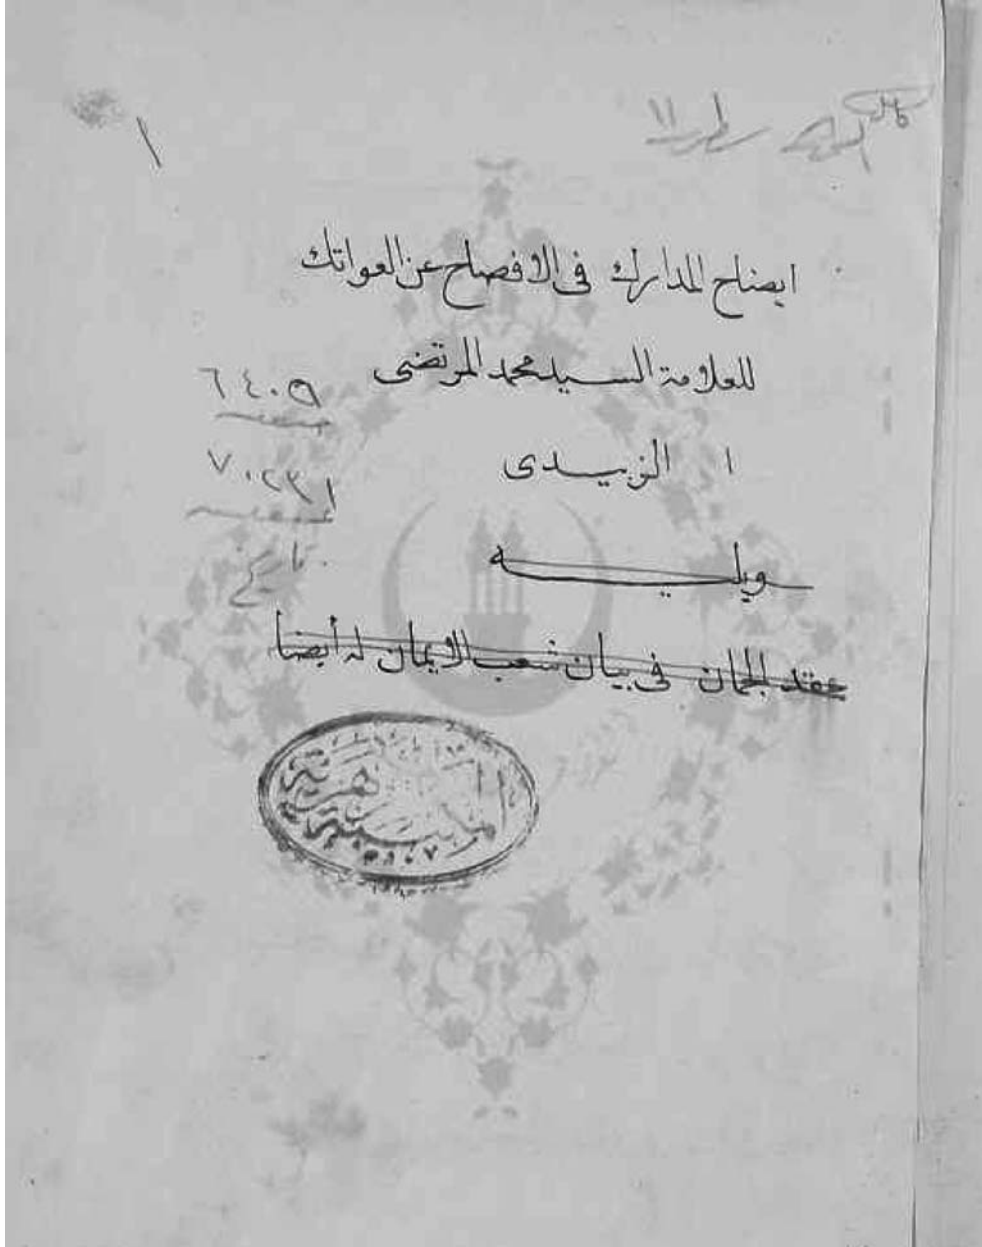 سطر ١١
١
ايضاح المدارك فى الافصاح عن العواتك
للعلامة السيد محمد المرتضى
٦٤٠٩
ا الزبيدى
٧٠٢٣١
ويليه
عقد الجمان فى بيان شعب الايمان له أيضا